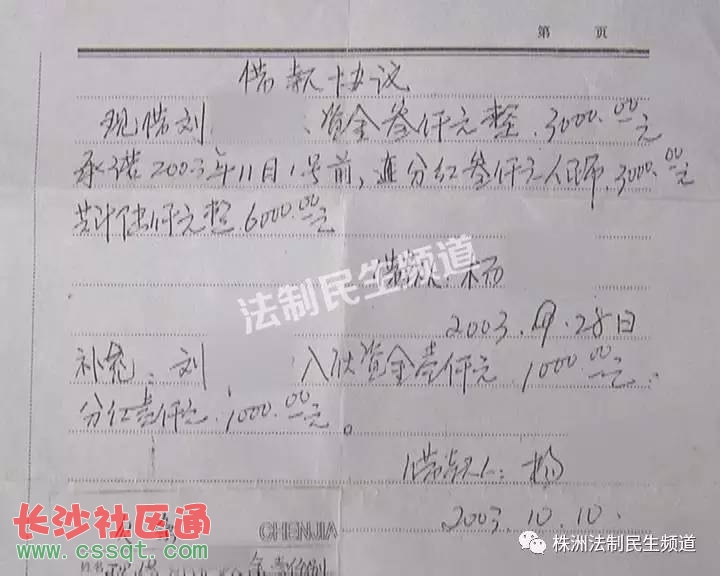 第 页
借款协议
现借刘 资金叁仟元整.3000.00元
承诺2003年11月1号前,连分红叁仟元人民币.3000.00元
共计陆仟元整.6000.00元
法制民生频道
借款人:杨
2003.9.28日
补充:刘 入伙资金壹仟元.1000.00元.
分红壹仟元.1000.00元。
借款人:杨
2003.10.10.
CHENJIA
姓名
长沙社区通
www.cssqt.com
株洲法制民生频道